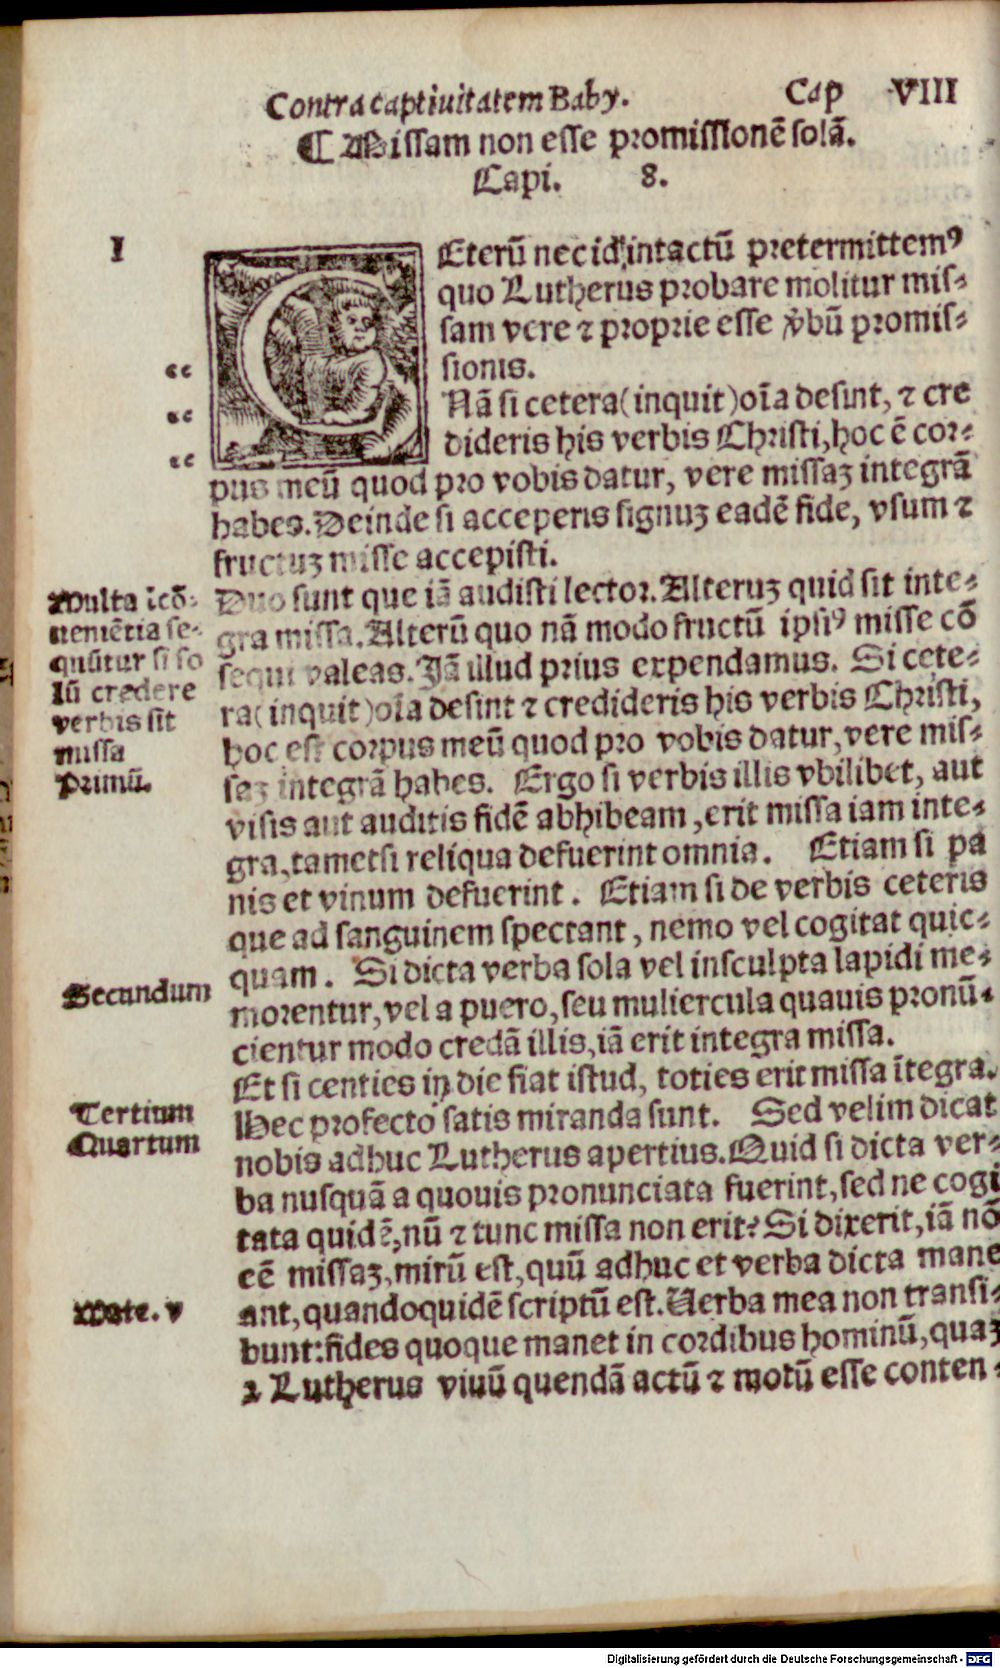 Contra captiuitatem Baby. Cap VIII
¶ Missam non esse promissionē solā.
Capi. 8.
I
CEterū nec id intactū pretermittemꝰ
quo Lutherus probare molitur mis⸗
sam vere ⁊ proprie esse v̄bū promis⸗
sionis.
“
Nā si cetera (inquit) oīa desint, ⁊ cre
“
dideris his verbis Christi, hoc ē cor⸗
“
pus meū quod pro vobis datur, vere missaꝫ integrā
habes. Deinde si acceperis signuꝫ eadē fide, vsum ⁊
fructuꝫ misse accepisti.
Multa īcō⸗
neniētia se⸗
quūtur si so
lū credere
verbis sit
missa
Primū.
Duo sunt que iā audisti lector. Alteruꝫ quid sit inte⸗
gra missa. Alterū quo nā modo fructū ipsiꝰ misse cō
sequi valeas. Jā illud prius expendamus. Si cete⸗
ra (inquit) oīa desint ⁊ credideris his verbis Christi,
hoc est corpus meū quod pro vobis datur, vere mis⸗
saꝫ integrā habes. Ergo si verbis illis vbilibet, aut
visis aut auditis fidē abhibeam, erit missa iam inte⸗
gra, tametsi reliqua defuerint omnia. Etiam si pa
nis et vinum defuerint. Etiam si de verbis ceteris
que ad sanguinem spectant, nemo vel cogitat quic⸗
Secundum
quam. Si dicta verba sola vel insculpta lapidi me⸗
morentur, vel a puero, seu muliercula quauis pronū⸗
cientur modo credā illis, iā erit integra missa.
Tertium
Et si centies in die fiat istud, toties erit missa ītegra.
Quartum
Hec profecto satis miranda sunt. Sed velim dicat
nobis adhuc Lutherus apertius. Quid si dicta ver⸗
ba nusquā a quouis pronunciata fuerint, sed ne cogi
tata quidē, nū ⁊ tunc missa non erit? Si dixerit, iā nō
eē missaꝫ, mirū est, quū adhuc et verba dicta mane
Mate. v
ant, quandoquidē scriptū est. Verba mea non transi⸗
bunt: fides quoque manet in cordibus hominū, quaꝫ
⁊ Lutherus viuū quendā actū ⁊ motū esse conten⸗
Digitalisierung gefördert durch die Deutsche Forschungsgemeinschaft - DFG